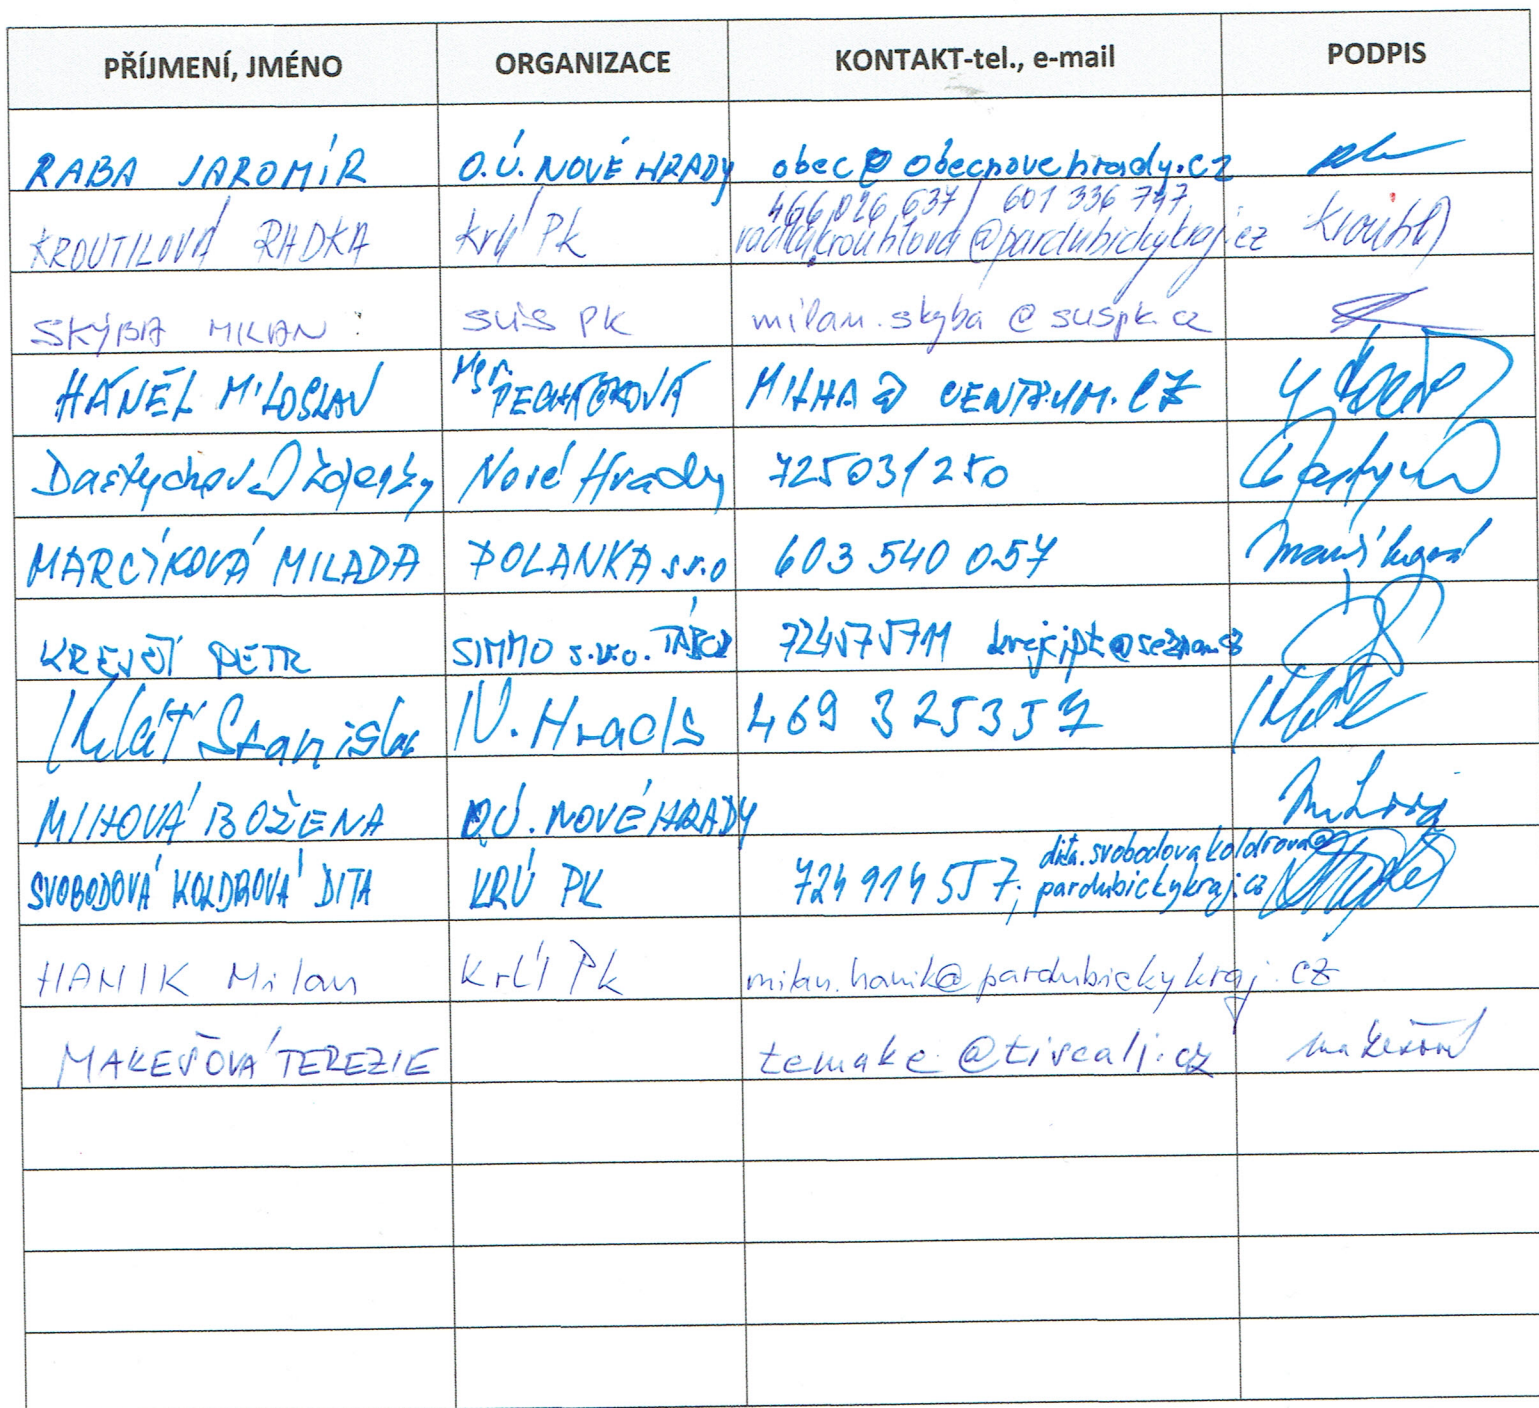 PŘÍJMENÍ, JMÉNO ORGANIZACE KONTAKT-tel., e-mail PODPIS
RABA JAROMÍR O.Ú. NOVÉ HRADY obec@obecnovehrady.cz
466 026 637 / 601 336 747
KROUTILOVÁ RADKA KrÚ Pk radka.kroutilova@pardubickykraj.cz
SKÝBA MILAN SÚS PK milan.skyba@suspk.cz
HÁNĚL MILOSLAV Mgr. PECHÁČKOVÁ MILHA@CENTRUM.CZ
Dastychová Nové Hrady 725031250
MARCÍKOVÁ MILADA POLANKA s.r.o 603 540 057
KREJČÍ PETR SIMMO s.r.o. TÁBOR 724575711 krejcipt@seznam.cz
Stanislav N. Hrady 469 325357
MILOVÁ BOŽENA O.Ú. NOVÉ HRADY
dita.svobodovakoldrova@
SVOBODOVÁ KOLDROVÁ DITA KRÚ PK 724 914 557; pardubickykraj.cz
HANIK Milan KrÚ Pk milan.hanik@pardubickykraj.cz
MAKEŠOVÁ TEREZIE temake@tiscali.cz